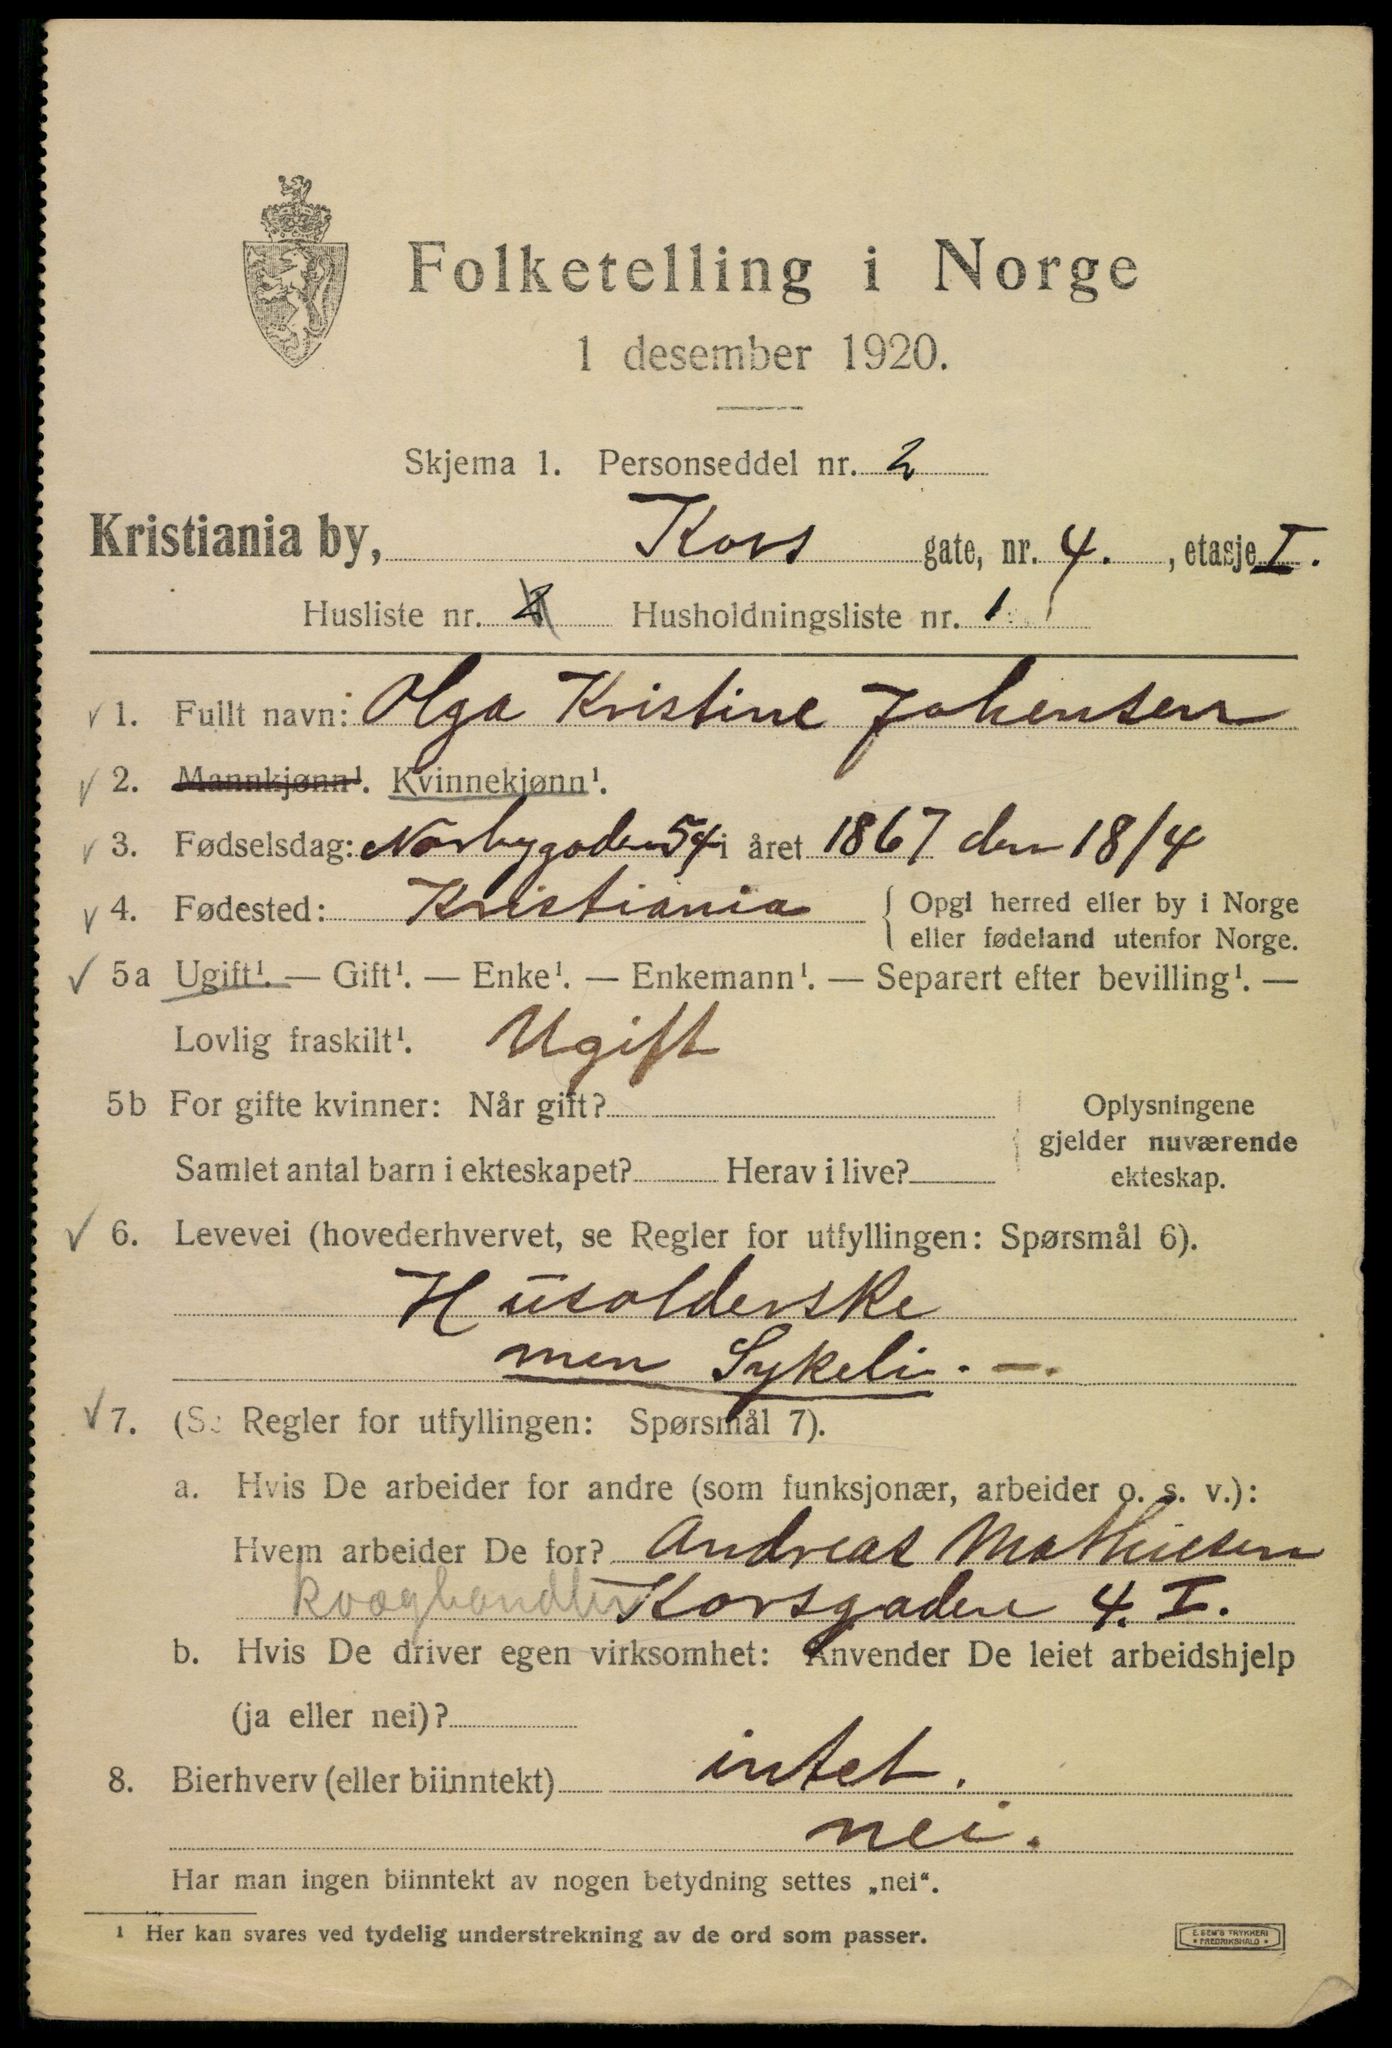 Folketelling i Norge
1 desember 1920.
Skjema 1. Personseddel nr. 2
Kristiania by, Kors gate, nr. 4. , etasje I.
Husliste nr. Husholdningsliste nr. 1
1. Fullt navn: Olga Kristine Johensen
2. Mannkjønn¹. Kvinnekjønn¹.
3. Fødselsdag: Norbygaden 54 i året 1867 den 18/4
4. Fødested: Kristiania { Opgi herred eller by i Norge
eller fødeland utenfor Norge.
5a Ugift¹. — Gift¹. — Enke¹. — Enkemann¹. — Separert efter bevilling¹. —
Lovlig fraskilt¹. Ugift
5b For gifte kvinner: Når gift? Oplysningene
gjelder nuværende
Samlet antal barn i ekteskapet? Herav i live? ekteskap.
6. Levevei (hovederhvervet, se Regler for utfyllingen: Spørsmål 6).
Husolderske
men Sykeli. —.
7. (Se Regler for utfyllingen: Spørsmål 7).
a. Hvis De arbeider for andre (som funksjonær, arbeider o. s. v.):
Hvem arbeider De for? Andreas Mathiesen
kvæghandler Korsgaden 4. I.
b. Hvis De driver egen virksomhet: Anvender De leiet arbeidshjelp
(ja eller nei)?
8. Bierhverv (eller biinntekt) intet.
nei.
Har man ingen biinntekt av nogen betydning settes „nei“.
¹ Her kan svares ved tydelig understrekning av de ord som passer.
E. SEM'S TRYKKERI
* FREDRIKSHALD *